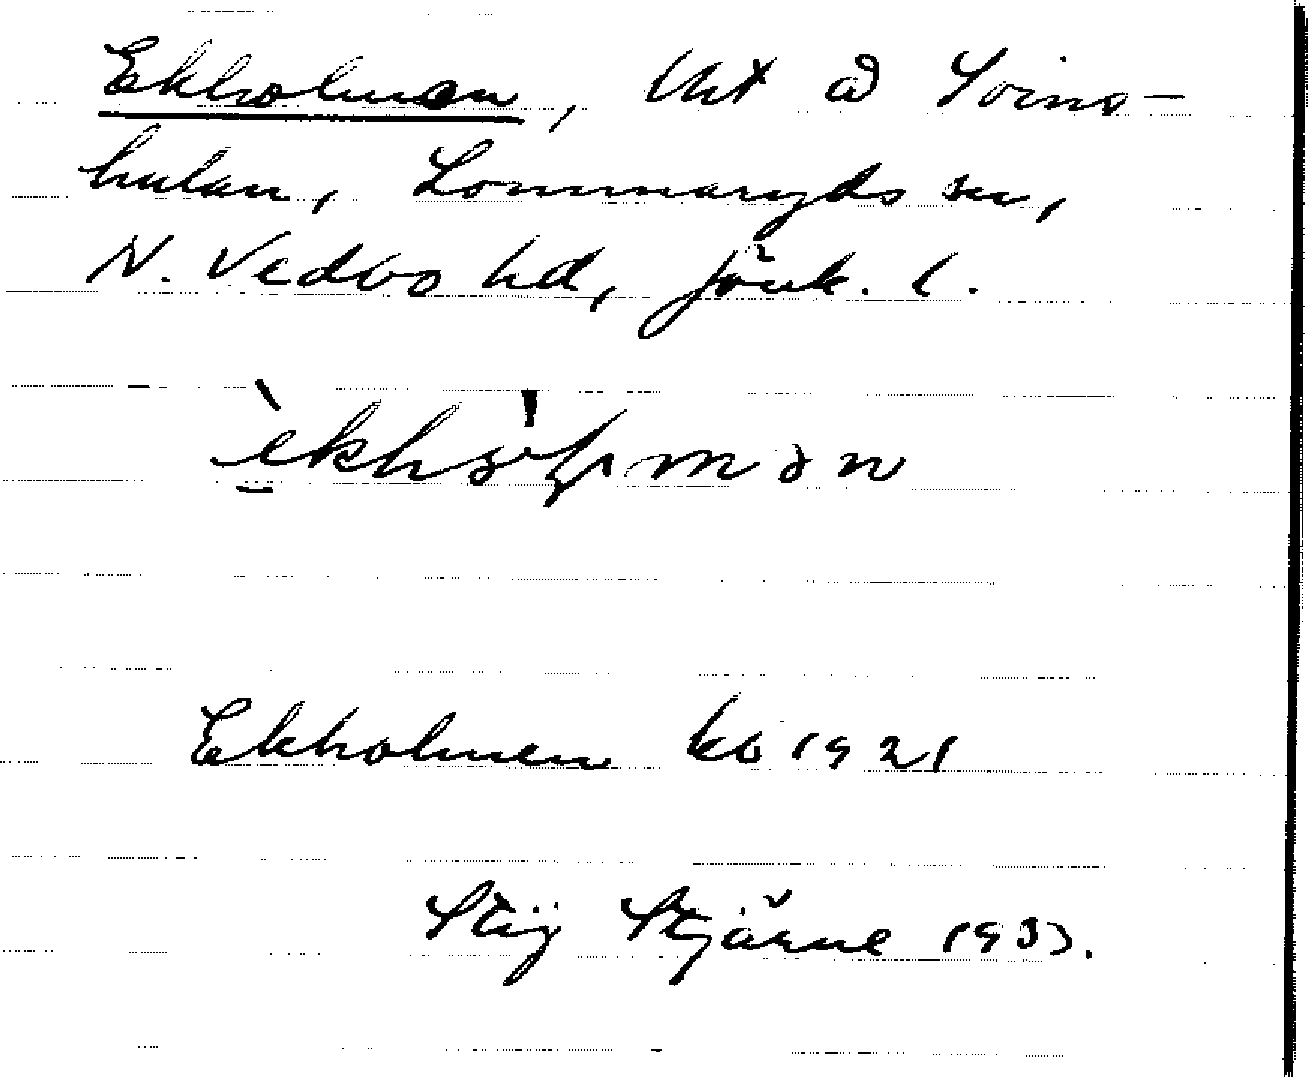 Ekholmen, lht å Svins-
hulan, Lommaryds sn,
N. Vedbo hd, Jönk. l.
Ekholmen kb 1921
Stig Stjärne 1933.